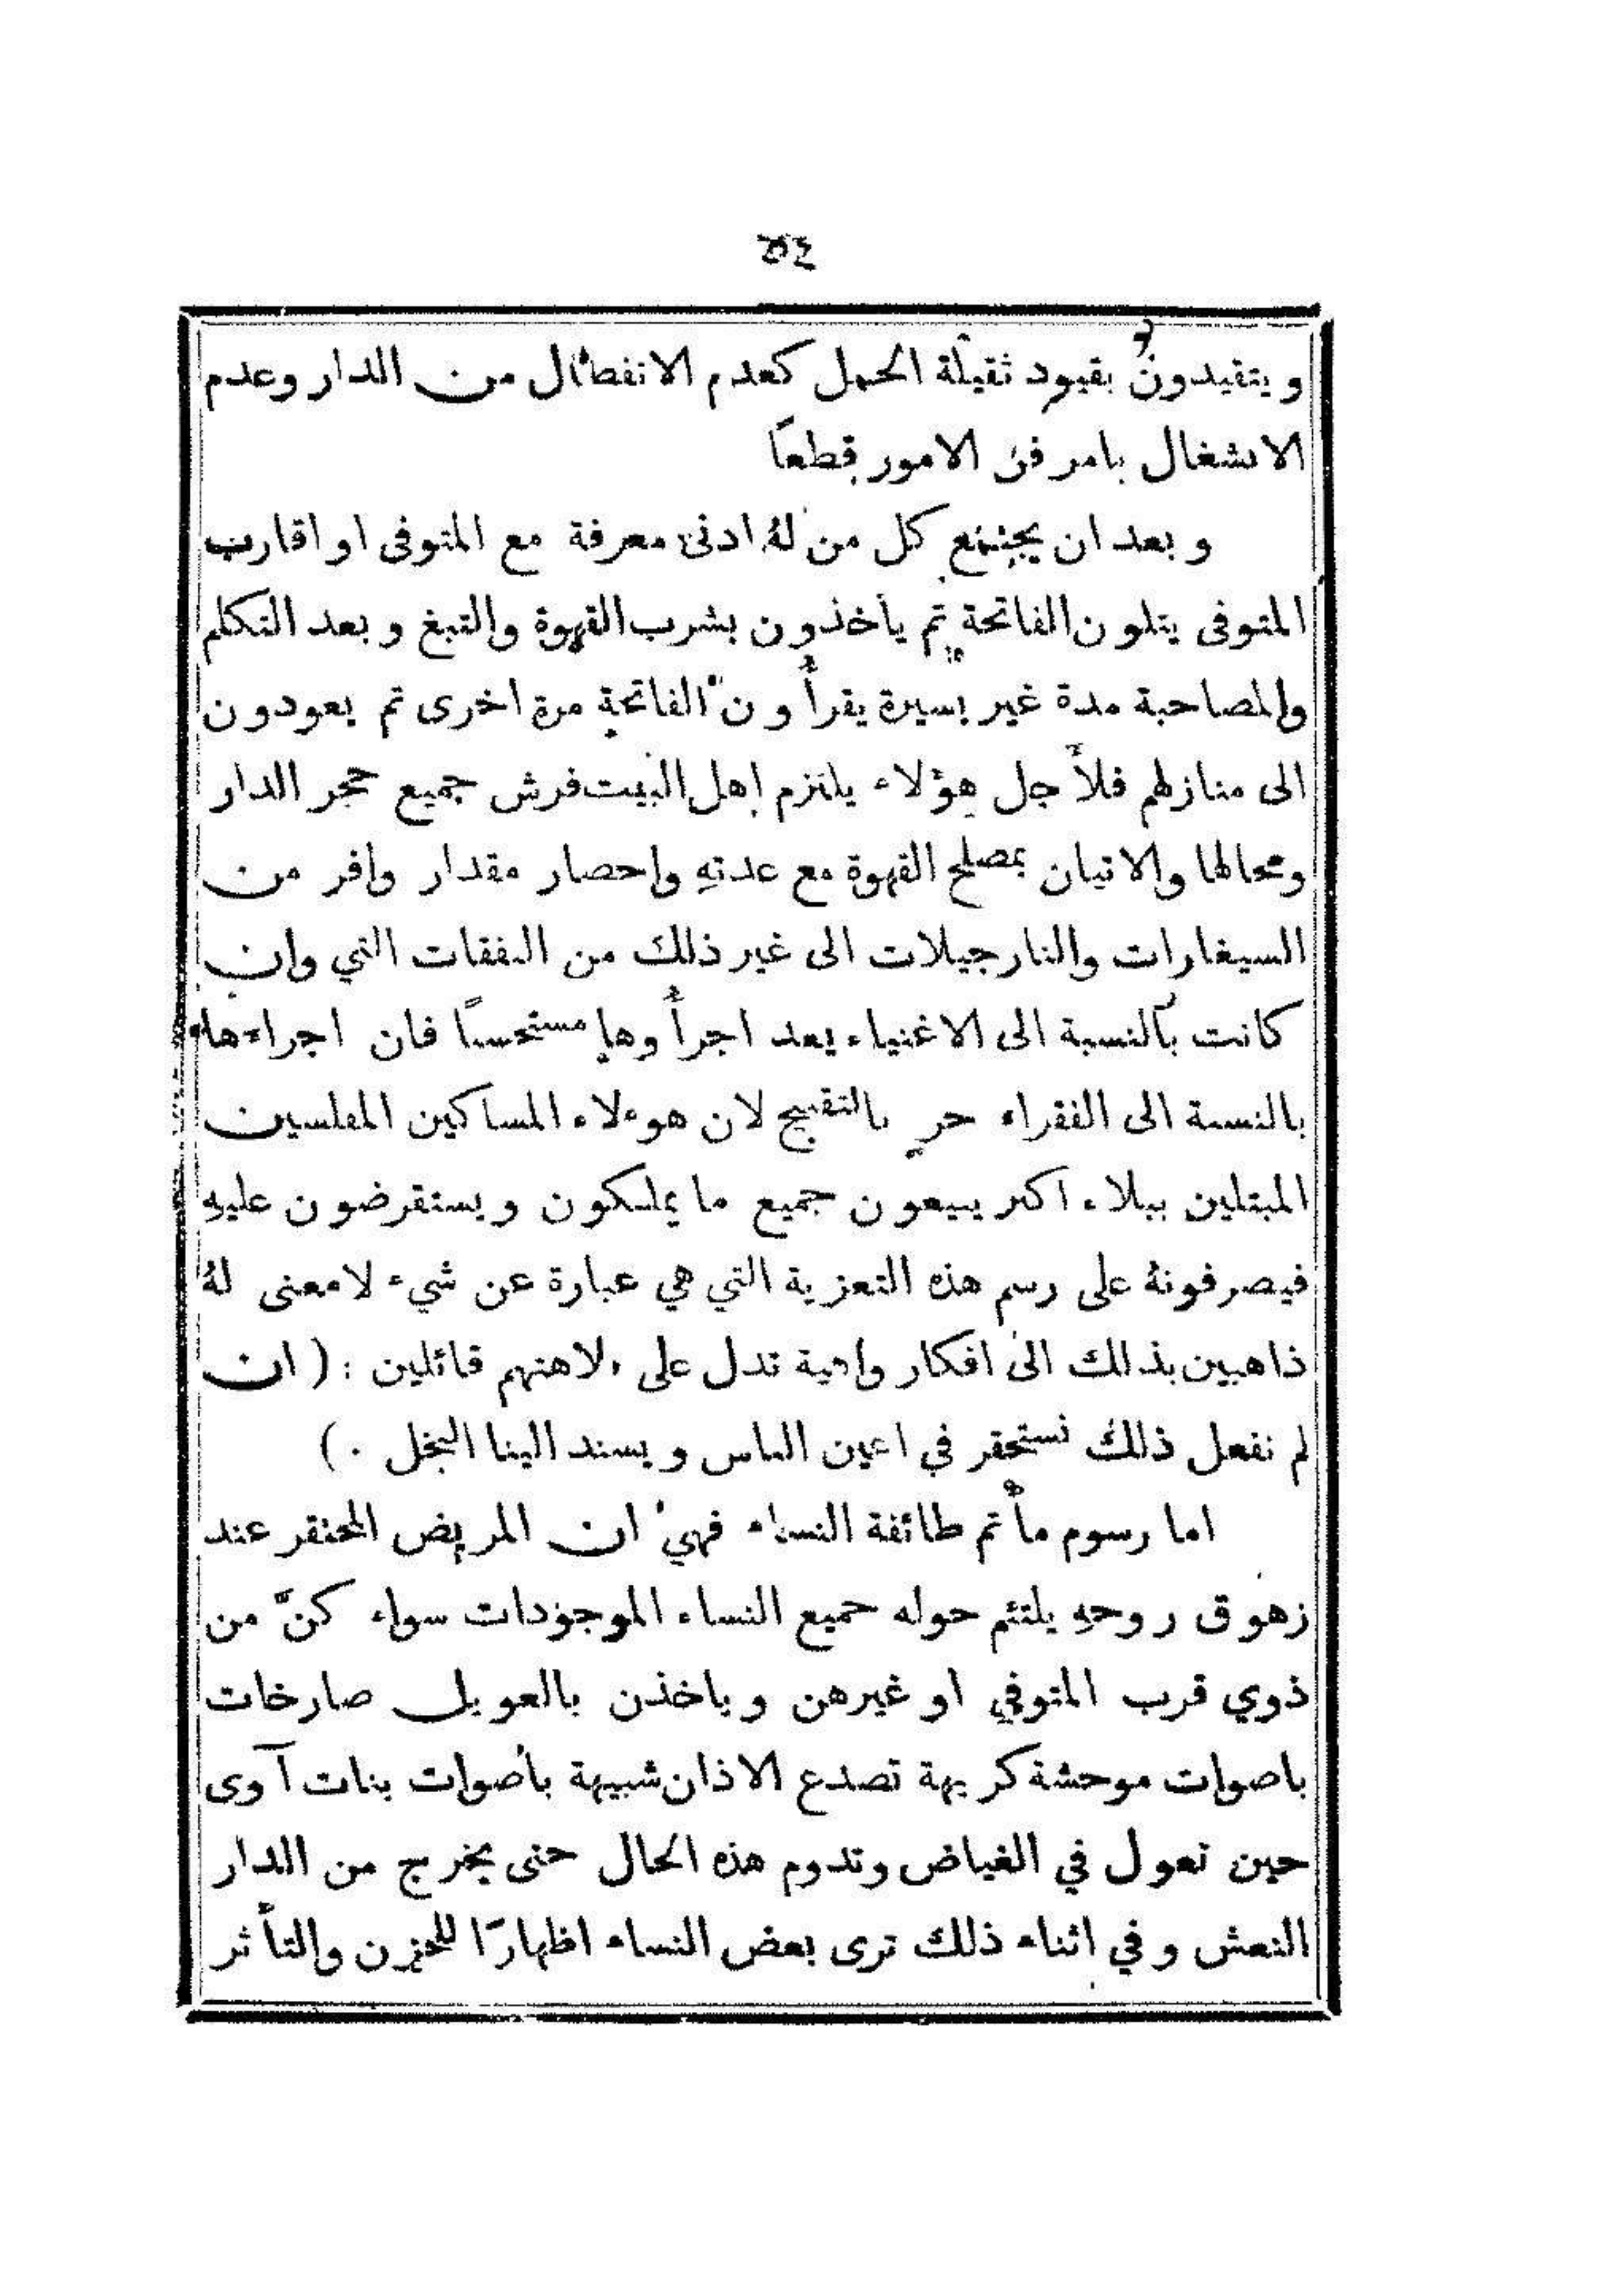 ٥٤
ويتقيدون بقيود ثقيلة الحمل كعدم الانفصال من الدار وعدم
الاشغال بامر من الامور قطعاً
وبعد ان يجتمع كل من لهُ ادنى معرفة مع المتوفى او اقارب
المتوفى يتلون الفاتحة ثم يأخذون بشرب القهوة والتبغ وبعد التكلم
والمصاحبة مدة غير يسيرة يقرأون الفاتحة مرة اخرى ثم يعودون
الى منازلهم فلأجل هؤلاء يلتزم اهل البيت فرش جميع حجر الدار
ومحالها والاتيان بمصلح القهوة مع عدتهِ واحضار مقدار وافر من
السيغارات والنارجيلات الى غير ذلك من النفقات التي وان
كانت بالنسبة الى الاغنياء يعد اجرأوها مستحسناً فان اجراءها
بالنسبة الى الفقراء حرٍ بالتقبيح لان هوءلاء المساكين المفلسين
المبتلين ببلاء اكبر يبيعون جميع ما يملكون ويستقرضون عليهِ
فيصرفونهُ على رسم هذه التعزية التي هي عبارة عن شيء لا معنى لهُ
ذاهبين بذلك الى افكار واهية تدل على قائلين : ( ان
لم نفعل ذلك نستحقر في اعين الناس ويسند الينا البخل . )
اما رسوم مأتم طائفة النساء فهي ان المريض المحتقر عند
زهوق روحهِ يلتئم حوله جميع النساء الموجودات سواء كنَّ من
ذوي قرب المتوفي او غيرهن وياخذن بالعويل صارخات
باصوات موحشة كريهة تصدع الاذان شبيهة بأصوات بنات آوى
حين تعول في الغياض وتدوم هذه الحال حتى يخرج من الدار
النعش وفي اثناء ذلك ترى بعض النساء اظهارًا للحزن والتأثر